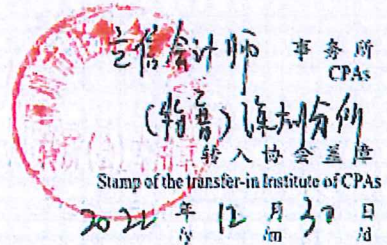 立信会计师 事务所
CPAs
(特普)深圳分所
转入协会盖章
Stamp of the transfer-in Institute of CPAs
2022年12月30日
/y /m /d